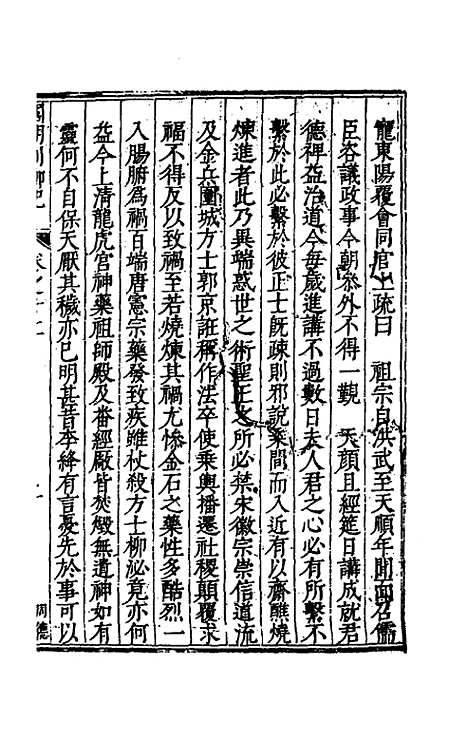 寵東陽覆會同官上疏曰　祖宗自洪武至天順年間面召儒
臣咨議政事今朝叅外不得一覩　天顔且經筵日講成就君
德禆益治道今每歲進講不過數日夫人君之心必有所繫不
繫於此必繫於彼正士旣疎則邪說乘間而入近有以齋醮燒
煉進者此乃異端惑世之術聖王之所必禁宋徽宗崇信道流
及金兵圍城方士郭京誑稱作法卒使乘輿播遷社稷顛覆求
福不得反以致禍至若燒煉其禍尤慘金石之藥性多酷烈一
入腸腑為禍百端唐憲宗藥發致疾雖杖殺方士柳泌竟亦何
益今上清龍虎宮神藥祖師殿及番經厰皆焚燬無遺神如有
靈何不自保天厭其穢亦已明甚昔李絳有言憂先於事可以